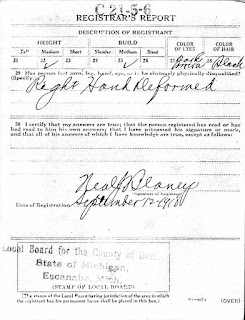 C 21-5-6
REGISTRAR'S REPORT
DESCRIPTION OF REGISTRANT
HEIGHT BUILD COLOR OF EYES COLOR OF HAIR
Tall Medium Short Slender Medium Stout
21 22 ✓ 23 24 25 ✓ 26 27 Dark Brown 28 Black
29 Has person lost arm, leg, hand, eye, or is he obviously physically disqualified?
(Specify.)
Right Hand Deformed
30 I certify that my answers are true; that the person registered has read or has
had read to him his own answers; that I have witnessed his signature or mark,
and that all of his answers of which I have knowledge are true, except as follows:
(Signature of Registrar)
Date of Registration September 12-1918
Local Board for the County of
State of Michigan,
Escanaba, Mich.
(STAMP OF LOCAL BOARD)
(The stamp of the Local Board having jurisdiction of the area in which
the registrant has his permanent home shall be placed in this box.)
(OVER)